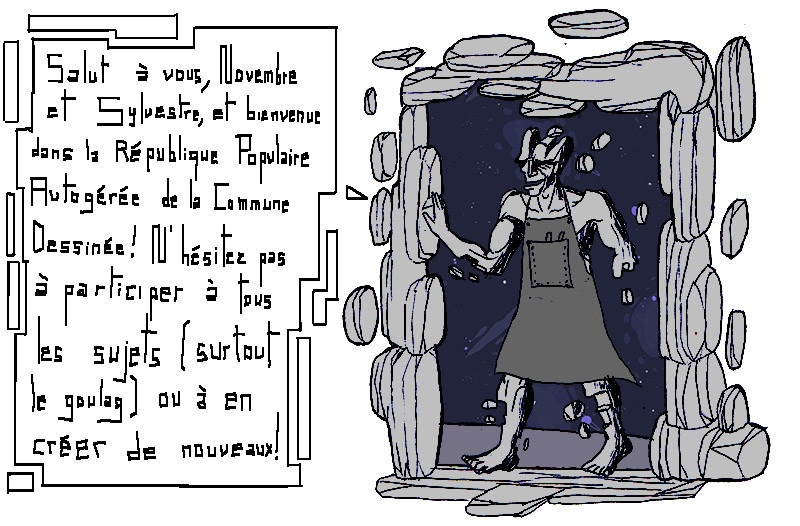 Salut à vous, Novembre
et Sylvestre, et bienvenue
dans la République Populaire
Autogérée de la Commune
Dessinée! N'hésitez pas
à participer à tous
les sujets (surtout
le goulag) ou à en
créer de nouveaux!